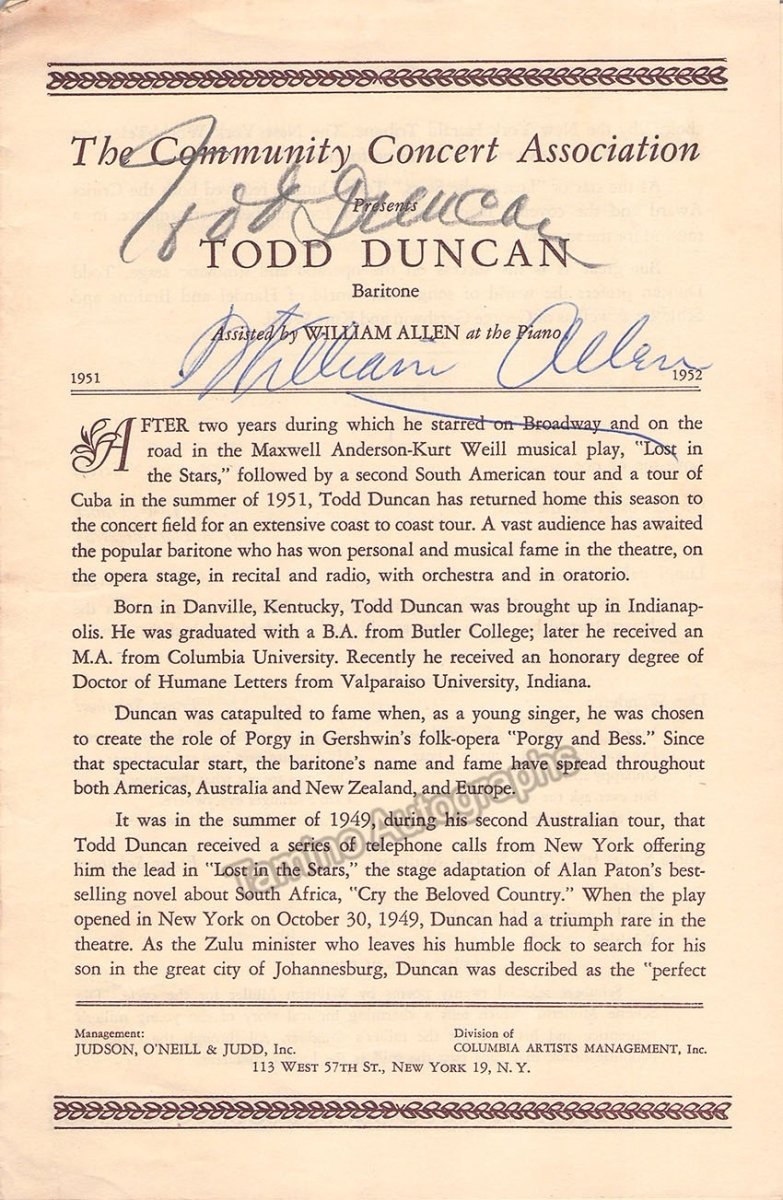 The Community Concert Association
Presents
Todd Duncan
TODD DUNCAN
Baritone
Assisted by WILLIAM ALLEN at the Piano
William Allen
1951 1952
AFTER two years during which he starred on Broadway and on the
road in the Maxwell Anderson-Kurt Weill musical play, "Lost in
the Stars," followed by a second South American tour and a tour of
Cuba in the summer of 1951, Todd Duncan has returned home this season to
the concert field for an extensive coast to coast tour. A vast audience has awaited
the popular baritone who has won personal and musical fame in the theatre, on
the opera stage, in recital and radio, with orchestra and in oratorio.
Born in Danville, Kentucky, Todd Duncan was brought up in Indianap-
olis. He was graduated with a B.A. from Butler College; later he received an
M.A. from Columbia University. Recently he received an honorary degree of
Doctor of Humane Letters from Valparaiso University, Indiana.
Duncan was catapulted to fame when, as a young singer, he was chosen
to create the role of Porgy in Gershwin's folk-opera "Porgy and Bess." Since
that spectacular start, the baritone's name and fame have spread throughout
both Americas, Australia and New Zealand, and Europe.
It was in the summer of 1949, during his second Australian tour, that
Todd Duncan received a series of telephone calls from New York offering
him the lead in "Lost in the Stars," the stage adaptation of Alan Paton's best-
selling novel about South Africa, "Cry the Beloved Country." When the play
opened in New York on October 30, 1949, Duncan had a triumph rare in the
theatre. As the Zulu minister who leaves his humble flock to search for his
son in the great city of Johannesburg, Duncan was described as the "perfect
Tamino Autographs
Management: Division of
JUDSON, O'NEILL & JUDD, Inc. COLUMBIA ARTISTS MANAGEMENT, Inc.
113 WEST 57TH ST., NEW YORK 19, N. Y.